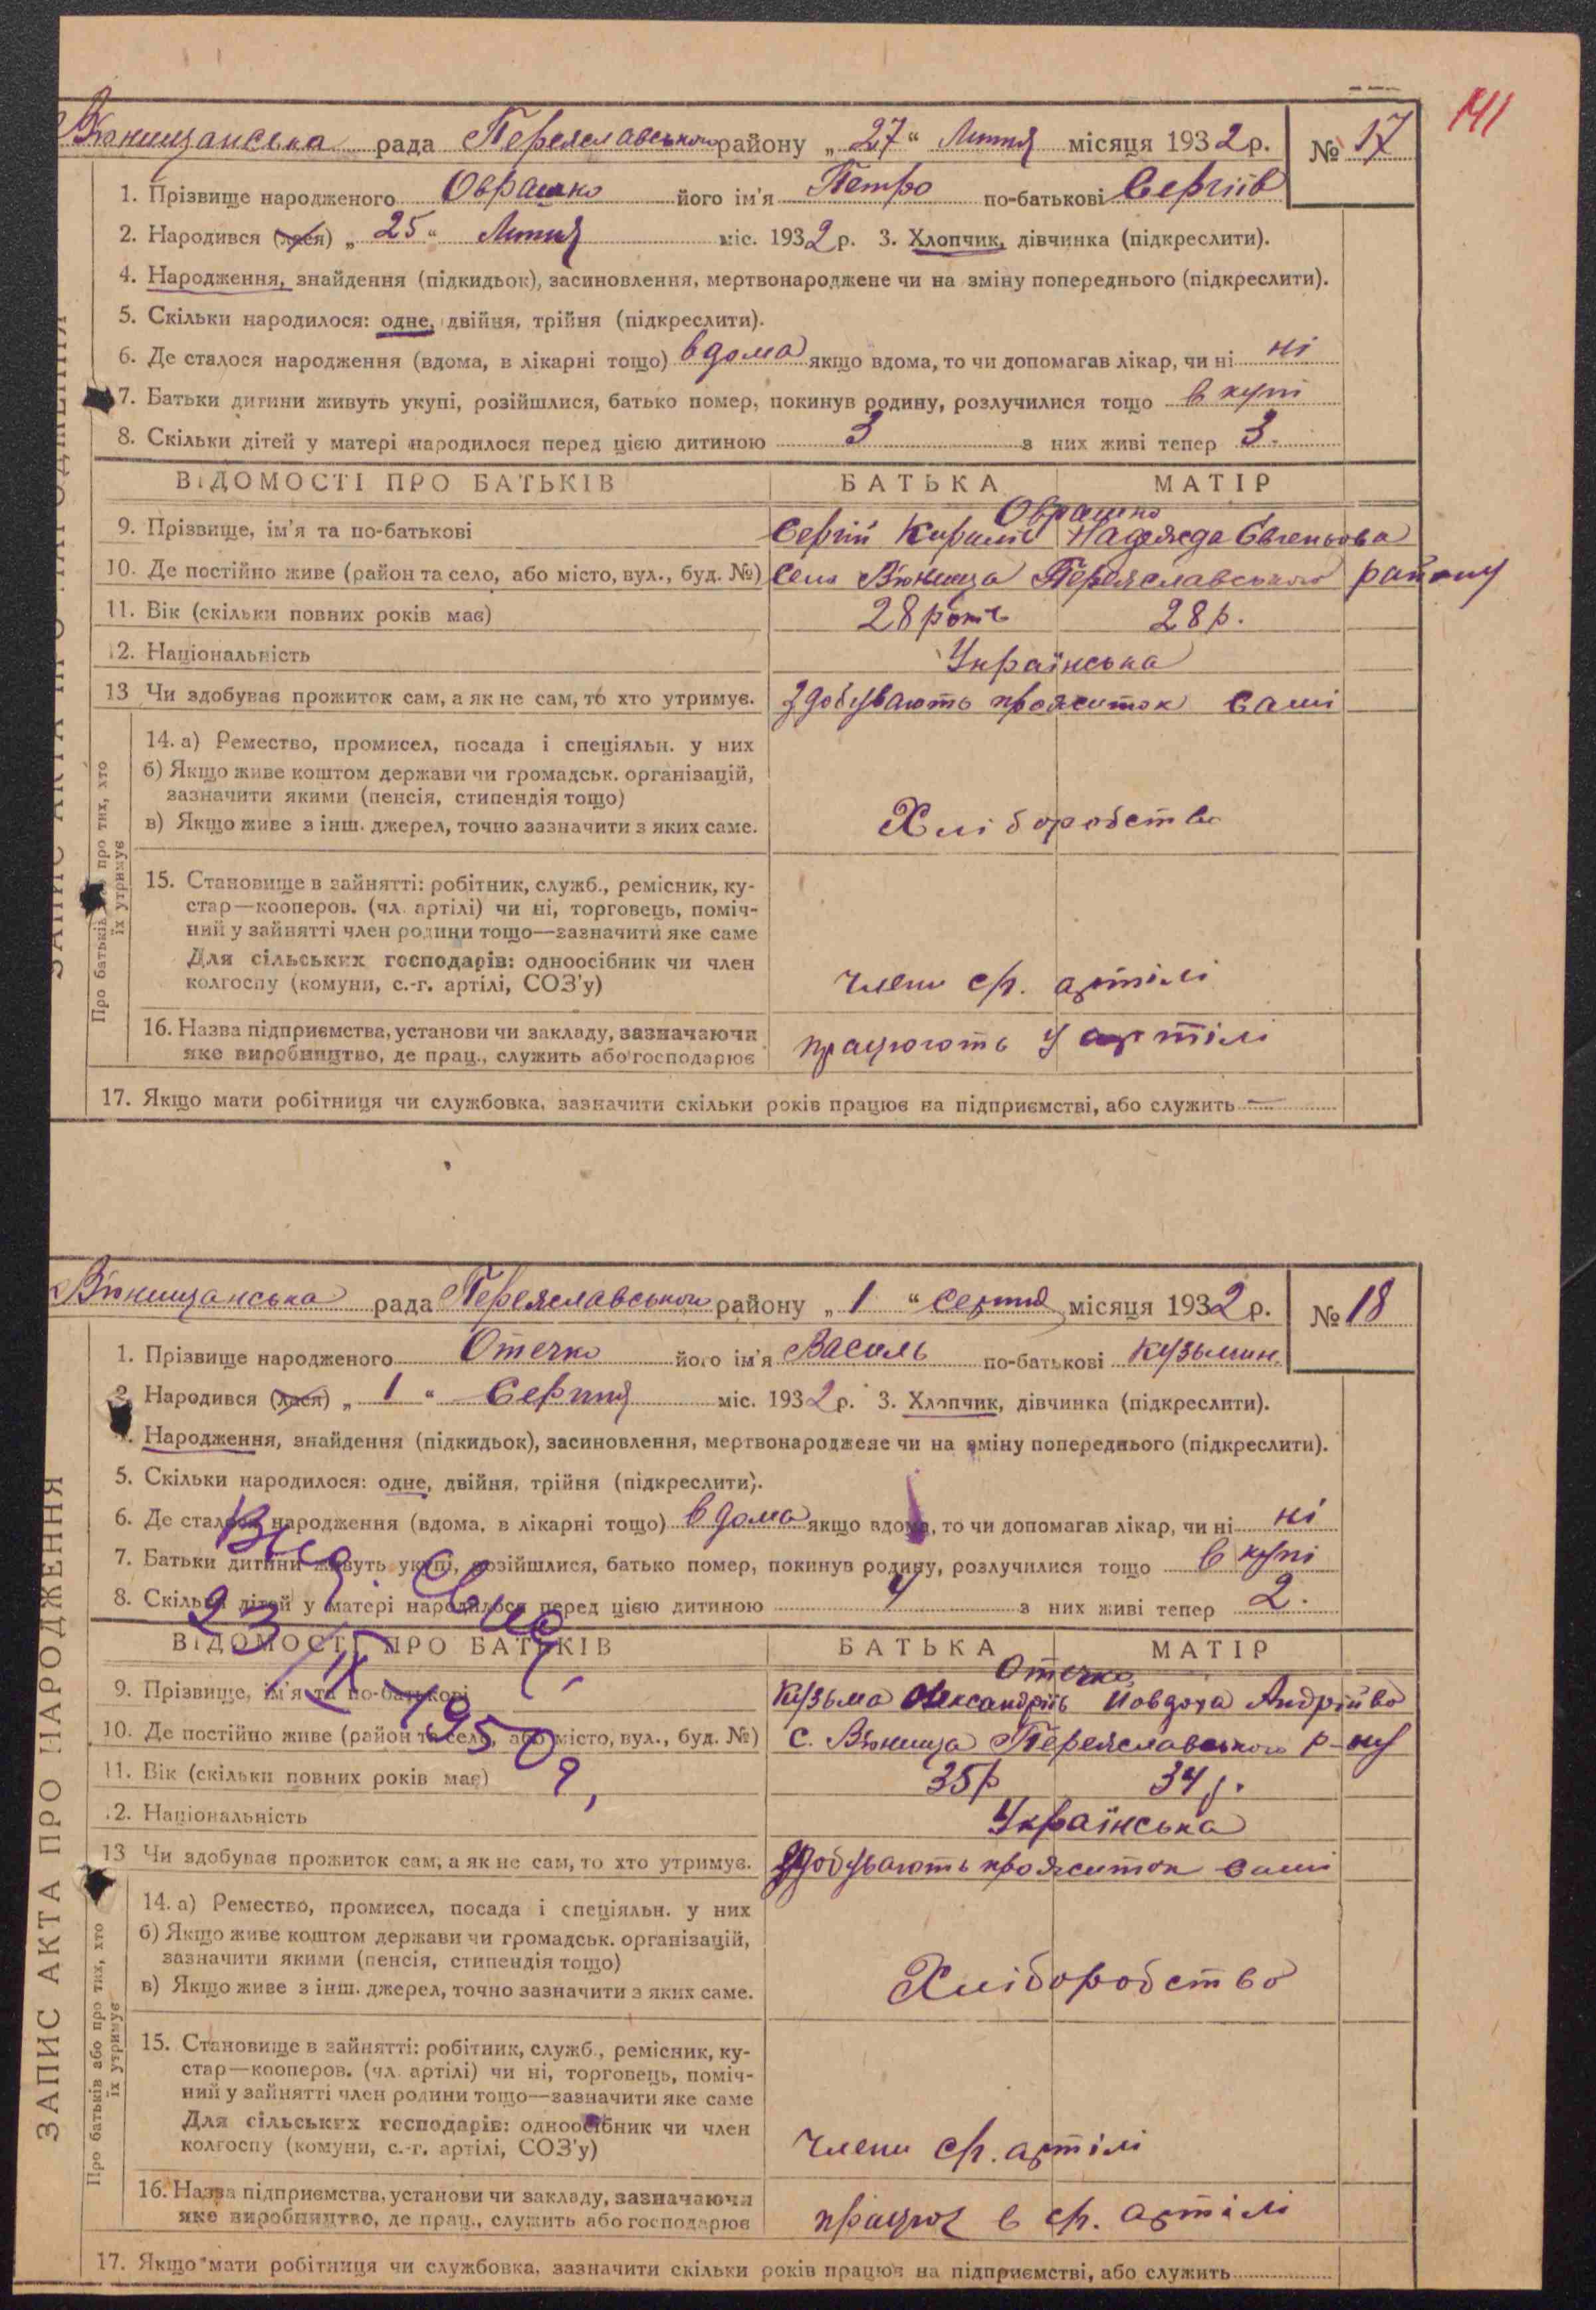 141
В'юнищанська рада Переяславського району „27“ Липня місяця 1932 р. № 17
1. Прізвище народженого Оврашко його ім'я Петро по-батькові Сергіїв
2. Народився (лася) „25“ Липня міс. 1932 р. 3. Хлопчик, дівчинка (підкреслити).
4. Народження, знайдення (підкидьок), засиновлення, мертвонароджене чи на зміну попереднього (підкреслити).
5. Скільки народилося: одне, двійня, трійня (підкреслити).
6. Де сталося народження (вдома, в лікарні тощо) вдома якщо вдома, то чи допомагав лікар, чи ні ні
7. Батьки дитини живуть укупі, розійшлися, батько помер, покинув родину, розлучилися тощо в купі
8. Скільки дітей у матері народилося перед цією дитиною 3 з них живі тепер 3.
ВІДОМОСТІ ПРО БАТЬКІВ БАТЬКА МАТІР
Оврашко
9. Прізвище, ім'я та по-батькові Сергій Кирилів Надежда Євгеньова
10. Де постійно живе (район та село, або місто, вул., буд. №) Село В'юнища Переяславського району
11. Вік (скільки повних років має) 28 років 28 р.
12. Національність Українська
13 Чи здобуває прожиток сам, а як не сам, то хто утримує. здобувають прожиток самі
14. а) Ремество, промисел, посада і спеціяльн. у них
б) Якщо живе коштом держави чи громадськ. організацій,
зазначити якими (пенсія, стипендія тощо)
в) Якщо живе з інш. джерел, точно зазначити з яких саме. Хліборобство
15. Становище в зайнятті: робітник, служб., ремісник, ку-
стар—кооперов. (чл. артілі) чи ні, торговець, поміч-
ний у зайнятті член родини тощо—зазначити яке саме
Для сільських господарів: одноосібник чи член
колгоспу (комуни, с.-г. артілі, СОЗ'у) члени с/г. артілі
16. Назва підприємства, установи чи закладу, зазначаючи
яке виробництво, де прац., служить або господарює працюють у артілі
17. Якщо мати робітниця чи службовка, зазначити скільки років працює на підприємстві, або служить —
Про батьків або про тих, хто їх утримує
В'юнищанська рада Переяславського району „1“ серпня місяця 1932 р. № 18
1. Прізвище народженого Отечко його ім'я Василь по-батькові Кузьмин.
2. Народився (лася) „1“ Серпня міс. 1932 р. 3. Хлопчик, дівчинка (підкреслити).
4. Народження, знайдення (підкидьок), засиновлення, мертвонароджене чи на зміну попереднього (підкреслити).
5. Скільки народилося: одне, двійня, трійня (підкреслити).
6. Де сталося народження (вдома, в лікарні тощо) вдома якщо вдома, то чи допомагав лікар, чи ні ні
7. Батьки дитини живуть укупі, розійшлися, батько помер, покинув родину, розлучилися тощо в купі
8. Скільки дітей у матері народилося перед цією дитиною 4 з них живі тепер 2.
23/IX 1950 р,
ВІДОМОСТІ ПРО БАТЬКІВ БАТЬКА МАТІР
Отечко
9. Прізвище, ім'я та по-батькові Кузьма Олександрів Йовдоха Андрійова
10. Де постійно живе (район та село, або місто, вул., буд. №) с. В'юнища Переяславського р-ну
11. Вік (скільки повних років має) 35 р 34 р.
12. Національність Українська
13 Чи здобуває прожиток сам, а як не сам, то хто утримує. здобувають прожиток самі
14. а) Ремество, промисел, посада і спеціяльн. у них
б) Якщо живе коштом держави чи громадськ. організацій,
зазначити якими (пенсія, стипендія тощо)
в) Якщо живе з інш. джерел, точно зазначити з яких саме. Хліборобство
15. Становище в зайнятті: робітник, служб., ремісник, ку-
стар—кооперов. (чл. артілі) чи ні, торговець, поміч-
ний у зайнятті член родини тощо—зазначити яке саме
Для сільських господарів: одноосібник чи член
колгоспу (комуни, с.-г. артілі, СОЗ'у) члени с/г. артілі
16. Назва підприємства, установи чи закладу, зазначаючи
яке виробництво, де прац., служить або господарює працює в с/г. артілі
17. Якщо мати робітниця чи службовка, зазначити скільки років працює на підприємстві, або служить
Про батьків або про тих, хто їх утримує
ЗАПИС АКТА ПРО НАРОДЖЕННЯ